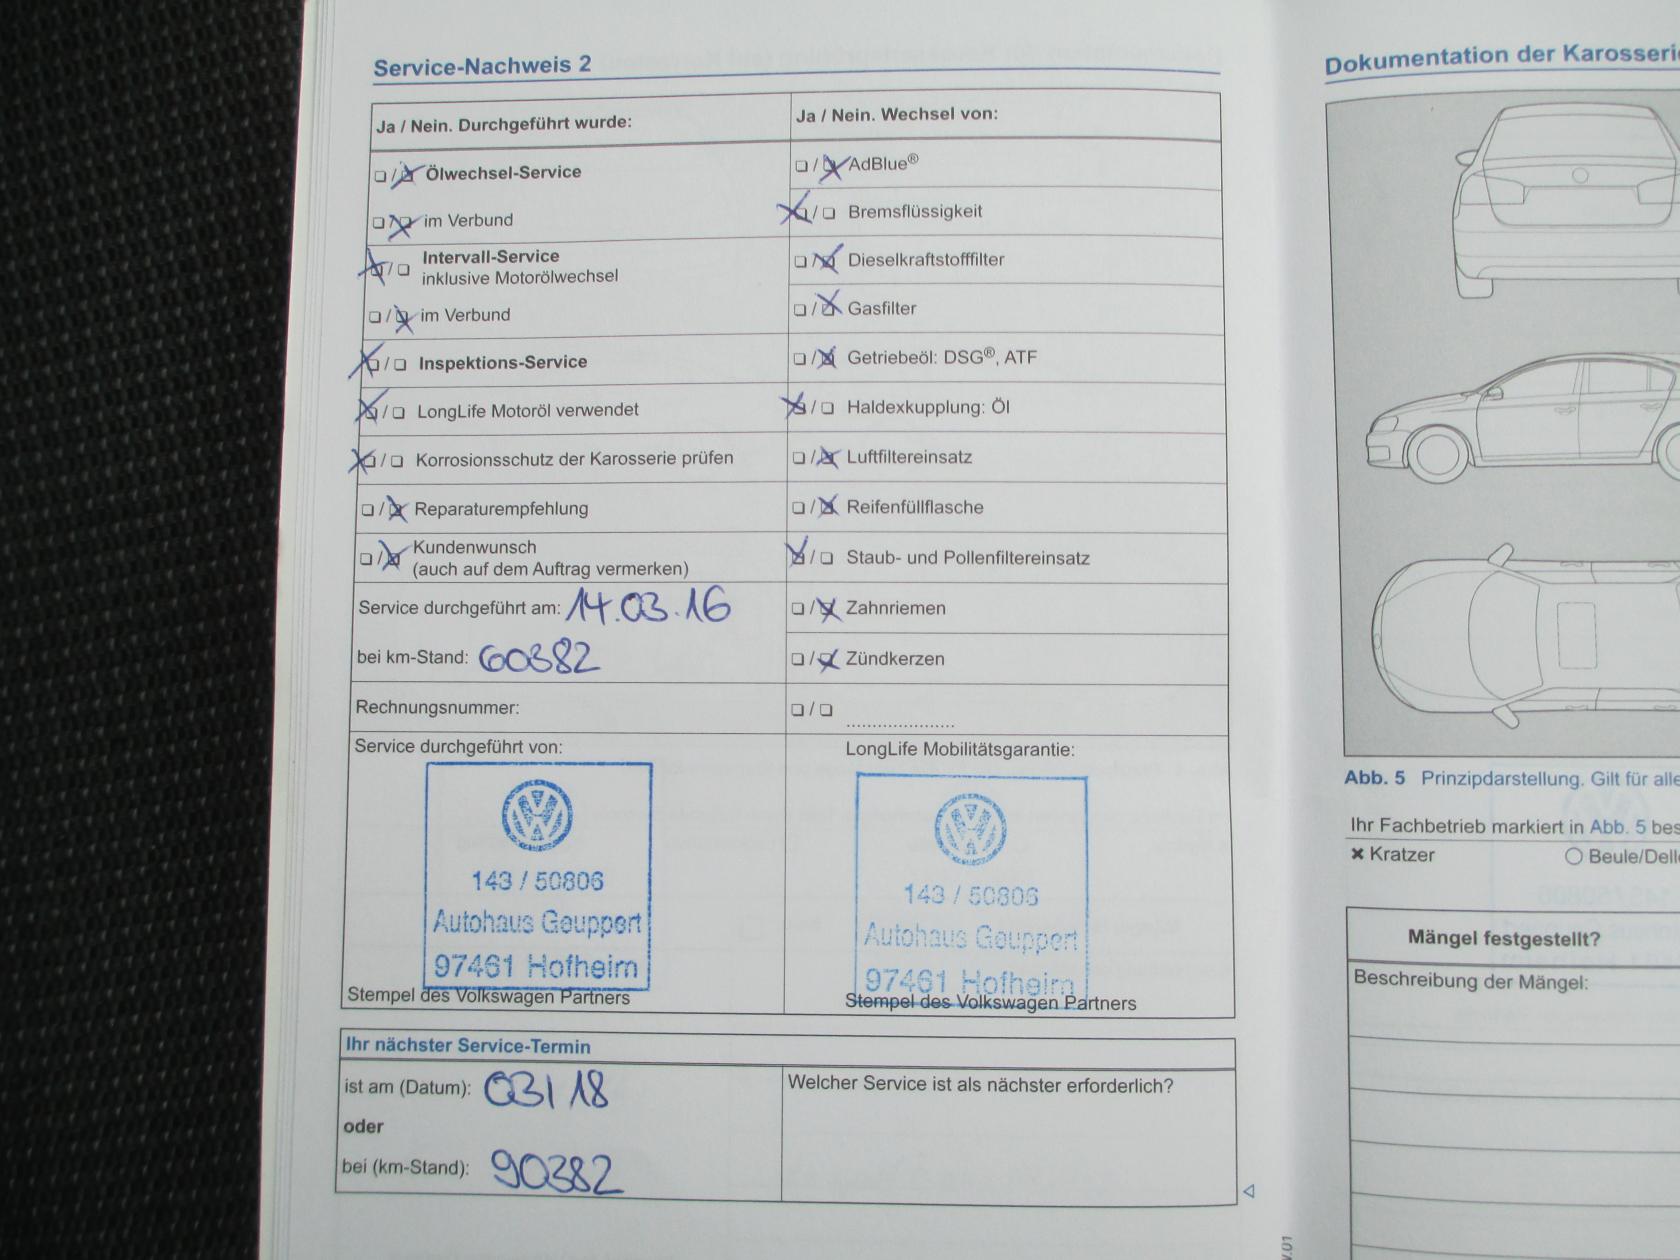 Service-Nachweis 2
Ja / Nein. Durchgeführt wurde:
Ölwechsel-Service
im Verbund
Intervall-Service
inklusive Motorölwechsel
im Verbund
Inspektions-Service
LongLife Motoröl verwendet
Korrosionsschutz der Karosserie prüfen
Reparaturempfehlung
Kundenwunsch
(auch auf dem Auftrag vermerken)
Service durchgeführt am: 14.03.16
bei km-Stand: 60382
Rechnungsnummer:
Service durchgeführt von:
143 / 50806
Autohaus Geuppert
97461 Hofheim
Stempel des Volkswagen Partners
Ja / Nein. Wechsel von:
AdBlue®
Bremsflüssigkeit
Dieselkraftstofffilter
Gasfilter
Getriebeöl: DSG®, ATF
Haldexkupplung: Öl
Luftfiltereinsatz
Reifenfüllflasche
Staub- und Pollenfiltereinsatz
Zahnriemen
Zündkerzen
LongLife Mobilitätsgarantie:
143 / 50806
Autohaus Geuppert
97461 Hofheim
Stempel des Volkswagen Partners
Ihr nächster Service-Termin
ist am (Datum): 03/18
oder
bei (km-Stand): 90382
Welcher Service ist als nächster erforderlich?
Dokumentation der Karosserie
Abb. 5 Prinzipdarstellung. Gilt für alle
Ihr Fachbetrieb markiert in Abb. 5 bes
Kratzer
Beule/Delle
Mängel festgestellt?
Beschreibung der Mängel: